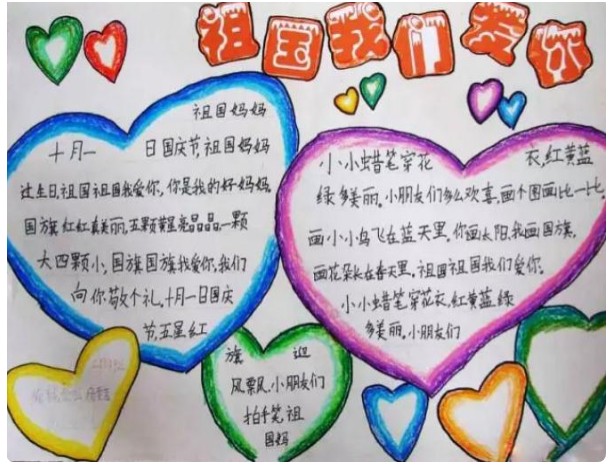 祖国我们爱你
祖国妈妈
十月一 日国庆节,祖国妈妈
过生日,祖国祖国我爱你,你是我的好妈妈。
国旗红红真美丽,五颗黄星亮晶晶,一颗
大四颗小,国旗国旗我爱你,我们
向你敬个礼,十月一日国庆
节,五星红
旗 迎
风飘,小朋友们
拍手笑祖
国妈
小小蜡笔穿花 衣,红黄蓝
绿多美丽。小朋友们多么欢喜,画个图画比一比。
画小小鸟飞在蓝天里。你画太阳,我画国旗,
画花朵长在春天里。祖国祖国我们爱你。
小小蜡笔穿花衣,红黄蓝绿
多美丽。小朋友们